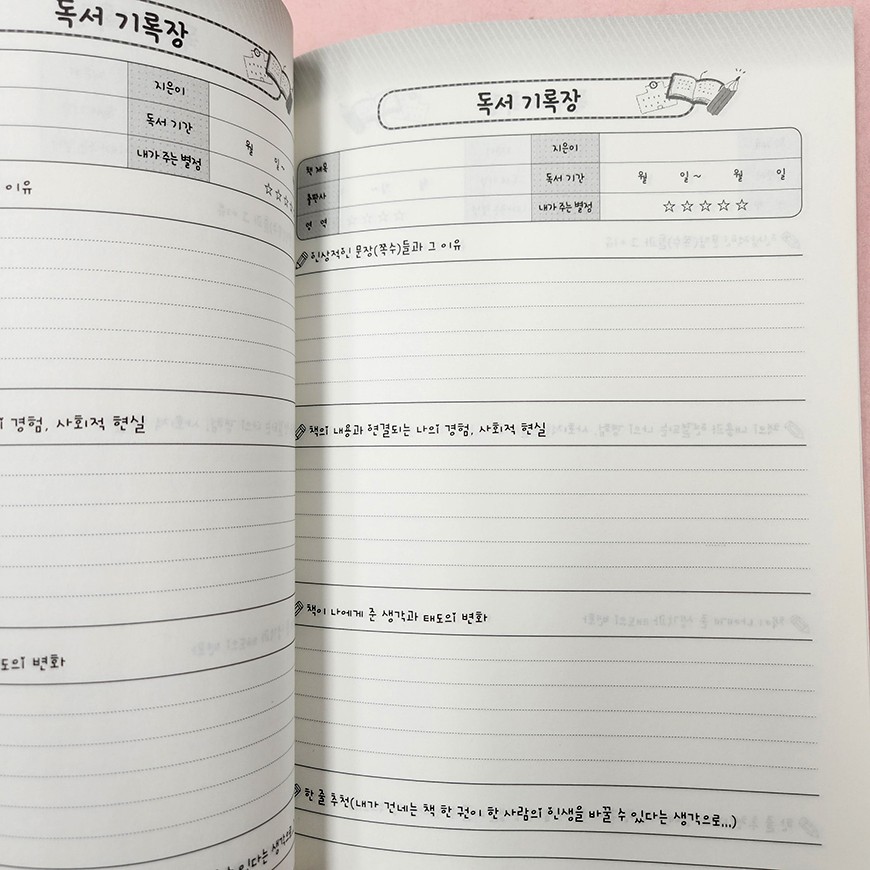 독서 기록장
지은이
독서 기간 월 일~
내가 주는 별점 ☆☆☆
이유
경험, 사회적 현실
도의 변화
있다는 생각으로
독서 기록장
책 제목 지은이
출판사 독서 기간 월 일~ 월 일
영 역 내가 주는 별점 ☆☆☆☆☆
인상적인 문장(쪽수)들과 그 이유
책의 내용과 연결되는 나의 경험, 사회적 현실
책이 나에게 준 생각과 태도의 변화
한 줄 추천(내가 건네는 책 한 권이 한 사람의 인생을 바꿀 수 있다는 생각으로...)